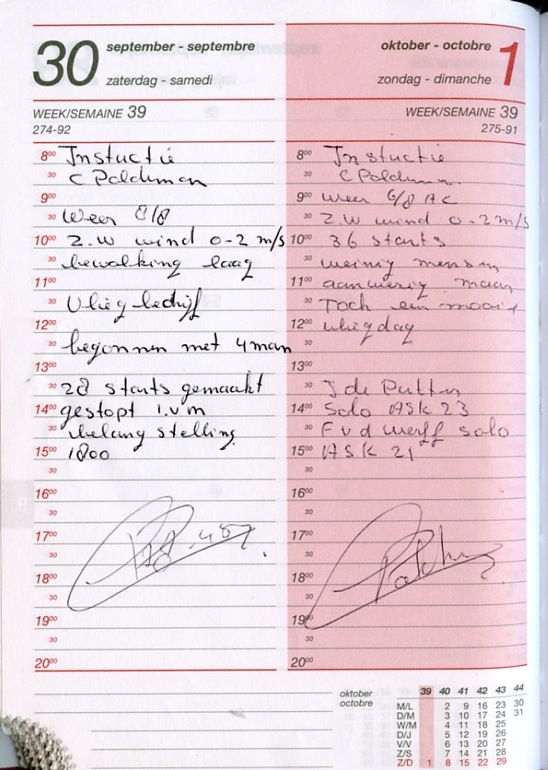 30 september - septembre
zaterdag - samedi
WEEK/SEMAINE 39
274-92
8⁰⁰ Instuctie
30 C Poldeman
9⁰⁰
30 Weer 8/8
10⁰⁰ Z.W wind 0-2 m/s
30 bewolking laag
11⁰⁰
30 Vlieg bedrijf
12⁰⁰
30 begonnen met 4 man
13⁰⁰
30 28 starts gemaakt
14⁰⁰ gestopt i.v m
30 belang stelling
15⁰⁰ 1800
30
16⁰⁰
30
17⁰⁰
30
18⁰⁰
30
19⁰⁰
30
20⁰⁰
oktober - octobre 1
zondag - dimanche
WEEK/SEMAINE 39
275-91
8⁰⁰ Instuctie
30 C Poldeman
9⁰⁰ weer 6/8 AC
30 Z.W wind 0-2 m/s
10⁰⁰ 36 starts
30 weinig mensen
11⁰⁰ aanwezig maar
30 Toch een mooie
12⁰⁰ vliegdag
30
13⁰⁰
30 J de Putter
14⁰⁰ Solo ASK 23
30 F v d Werff solo
15⁰⁰ ASK 21
30
16⁰⁰
30
17⁰⁰
30
18⁰⁰
30
19⁰⁰
30
20⁰⁰
oktober
octobre
39 40 41 42 43 44
M/L 2 9 16 23 30
D/M 3 10 17 24 31
W/M 4 11 18 25
D/J 5 12 19 26
V/V 6 13 20 27
Z/S 7 14 21 28
Z/D 1 8 15 22 29